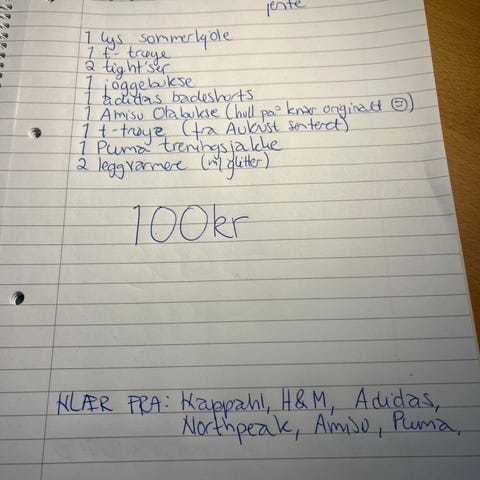 jente
1 lys sommerkjole
1 t-trøye
2 tight'ser
1 joggebukse
1 adidas badeshorts
1 Amisu Olabukse (hull på knær originalt ☺)
1 t-trøye (fra Aukust senteret)
1 Puma treningsjakke
2 leggvarmere (m/glitter)
100kr
KLÆR FRA: Kappahl, H&M, Adidas,
Northpeak, Amisu, Puma.